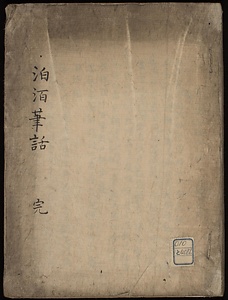 泊洦筆話 完
010